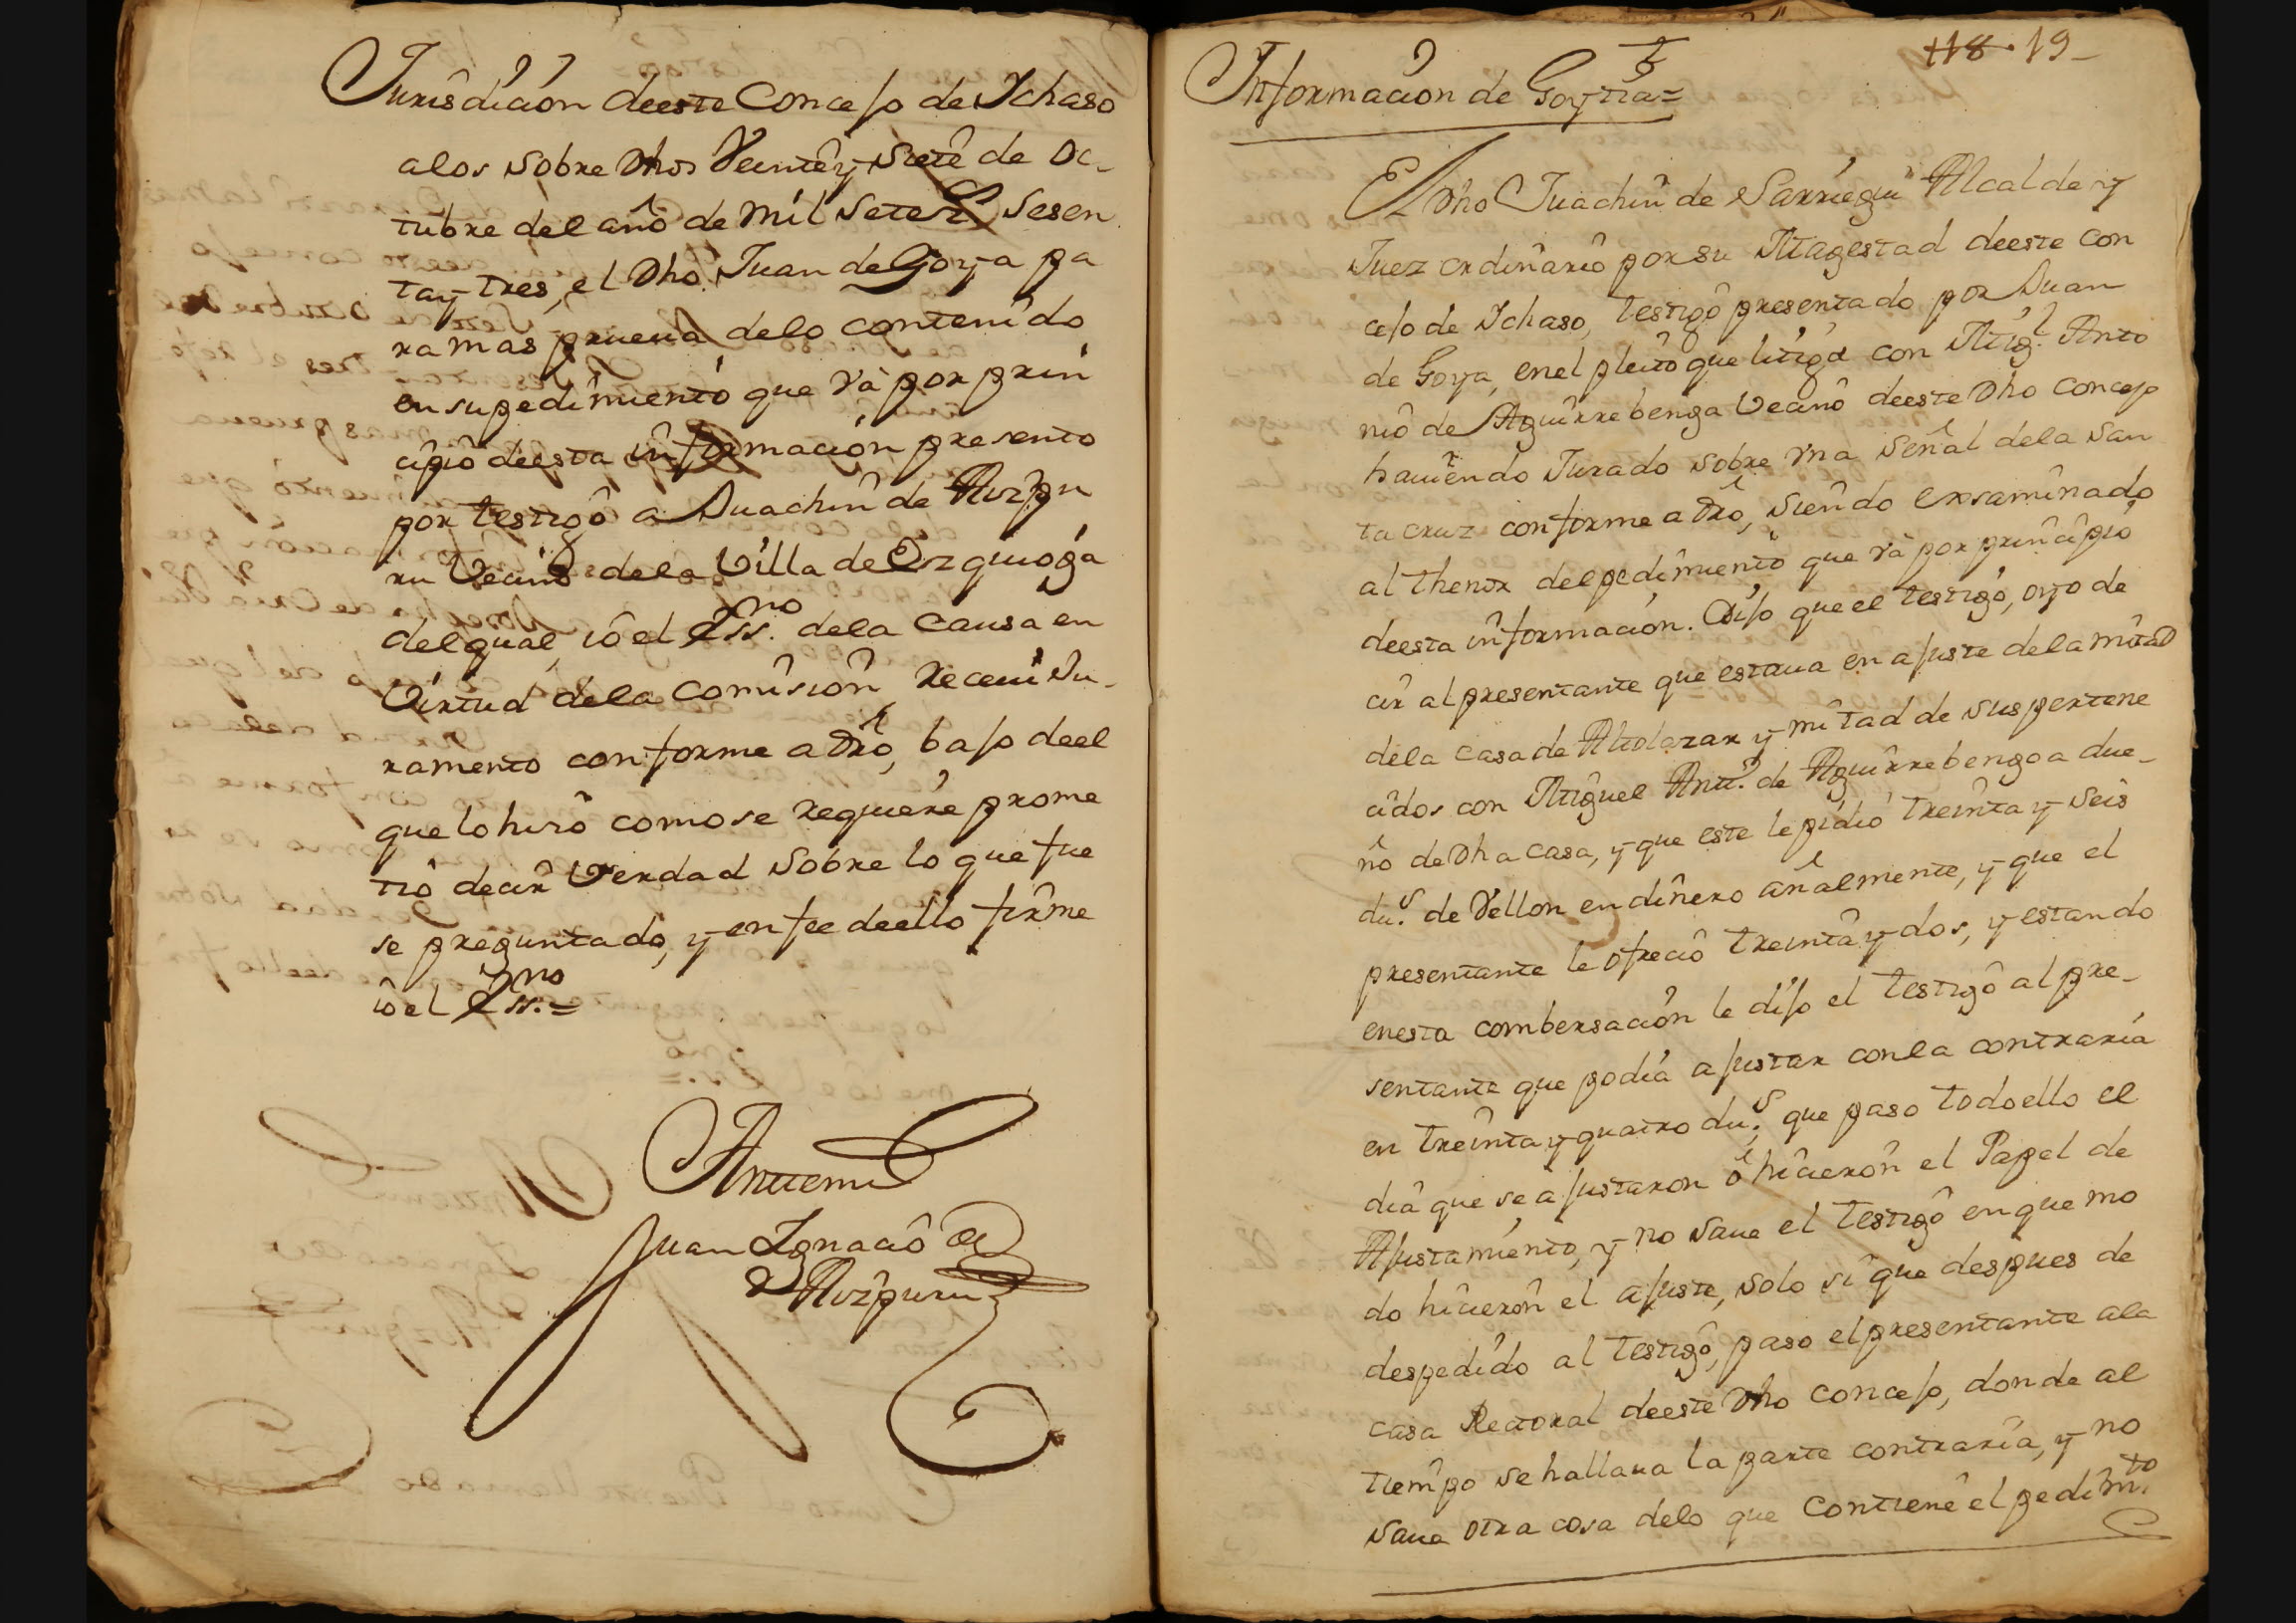 Jurisdicion deeste Concejo de Ichaso
alos sobre dhos Veinte y siete de oc-
tubre del año de mil setez.s sesen
tay tres, el dho Juan de Goya pa
ra mas prueua delo contenido
en su pedimiento que và por prin
cipio deesta informacion presento
por testigo a Juachin de Aizpu
ru Vecino dela Villa de Ezquioga
del qual, io el Ess.no dela causa en
Virtud dela comision, Receui Ju-
ramento conforme a dro, bajo deel
que lo hizo como se requiere prome
tio decir Verdad sobre lo que fue
se preguntado, y en fee deello firme
io el Ess.no =
Antemi
Juan Ignacio de
Aizpuru
118. 19-
Informacion de Goytia =
El dho Juachin de Sarriegui Alcalde y
Juez ordinario por su Magestad deeste con
cejo de Ichaso, testigo presentado por Juan
de Goya, en el pleito que litiga con Mig.l Anto
nio de Aguirrebenga Vecino deeste dho concejo
hauiendo Jurado sobre vna señal dela san
ta cruz conforme a dro, siendo exsaminado
al thenor del pedimiento que và por principio
deesta informacion. Dijo que el testigo, oyo de
cir al presentante que estaua en ajuste dela mitad
dela casa de Aliolazar y mitad de sus pertene
cidos con Miguel Antt.o de Aguirrebengoa due-
ño de dha casa, y que este le pidio treinta y seis
du.s de Vellon en dinero añalmente, y que el
presentante le ofrecio treinta y dos, y estando
enesta combersacion le dijo el testigo al pre-
sentante que podia ajustar conla contraria
en treinta y quatro du.s, que paso todo ello el
dia que se ajustaron ò hicieron el Papel de
Ajustamiento, y no saue el testigo en que mo
do hicieron el ajuste, solo si que despues de
despedido al testigo, paso el presentante ala
casa Rectoral deeste dho concejo, donde al
tiempo se hallaua la parte contraria, y no
saue otra cosa delo que contiene el pedim.to